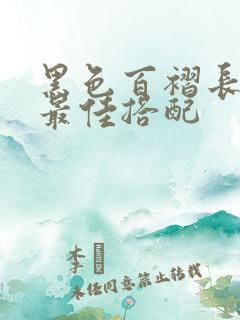 黑色百褶長
最佳搭配
李
未经同意禁止转载